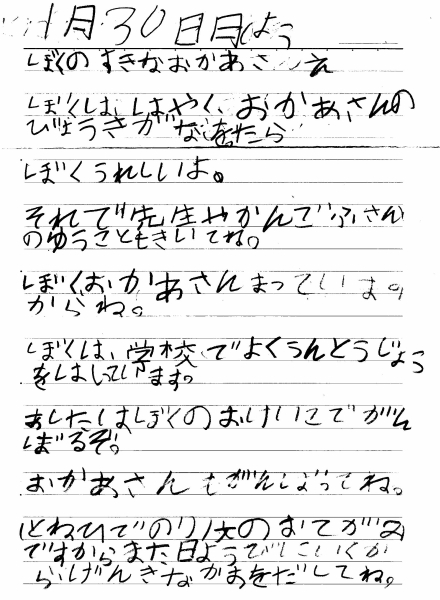 1月30日月よう
ぼくのすきなおかあさんえ
ぼくは、はやく、おかあさんの
びょうきがなおったら
ぼくうれしいよ。
それで先生やかんごふさん
のゆうこともきいてね。
ぼくおかあさんまっています
からね。
ぼくは、学校でよくうんどうじょう
をはしています。
あしたはぼくのおけいこでがん
ばるぞ。
おかあさんもがんばってね。
(とねひでのり)犬のおてがみ
ですからまた日ようびにいくか
らげんきなかおをだしてね。